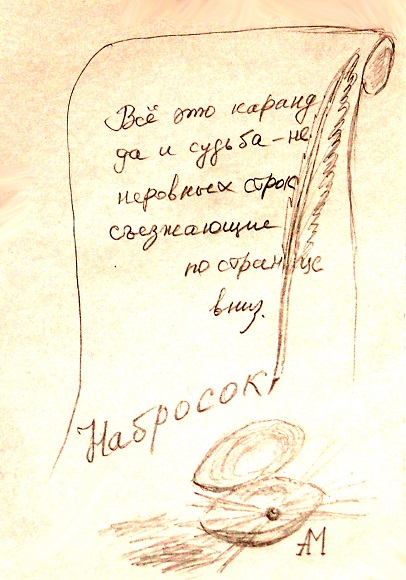 Всё это каранд
да и судьба - не
неровных строк
съезжающие
по странице
вниз.
Набросок
АМ